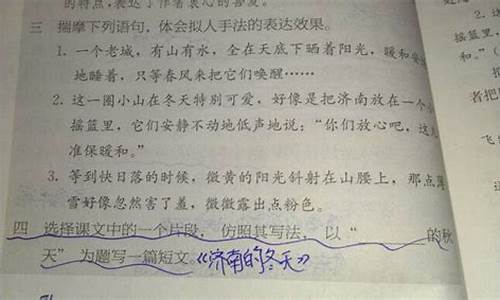 的特点,表达了作者衷心的喜爱。
三 揣摩下列语句,体会拟人手法的表达效果。
1. 一个老城,有山有水,全在天底下晒着阳光,暖和安
地睡着,只等春风来把它们唤醒……
2. 这一圈小山在冬天特别可爱,好像是把济南放在一个
摇篮里,它们安静不动地低声地说:“你们放心吧,这儿
准保暖和。”
3. 等到快日落的时候,微黄的阳光斜射在山腰上,那点薄
雪好像忽然害了羞,微微露出点粉色。
四 选择课文中的一个片段,仿照其写法,以“ 的秋
天”为题写一篇短文。《济南的冬天》
2. 这
摇篮里,
和。”
者把
飞